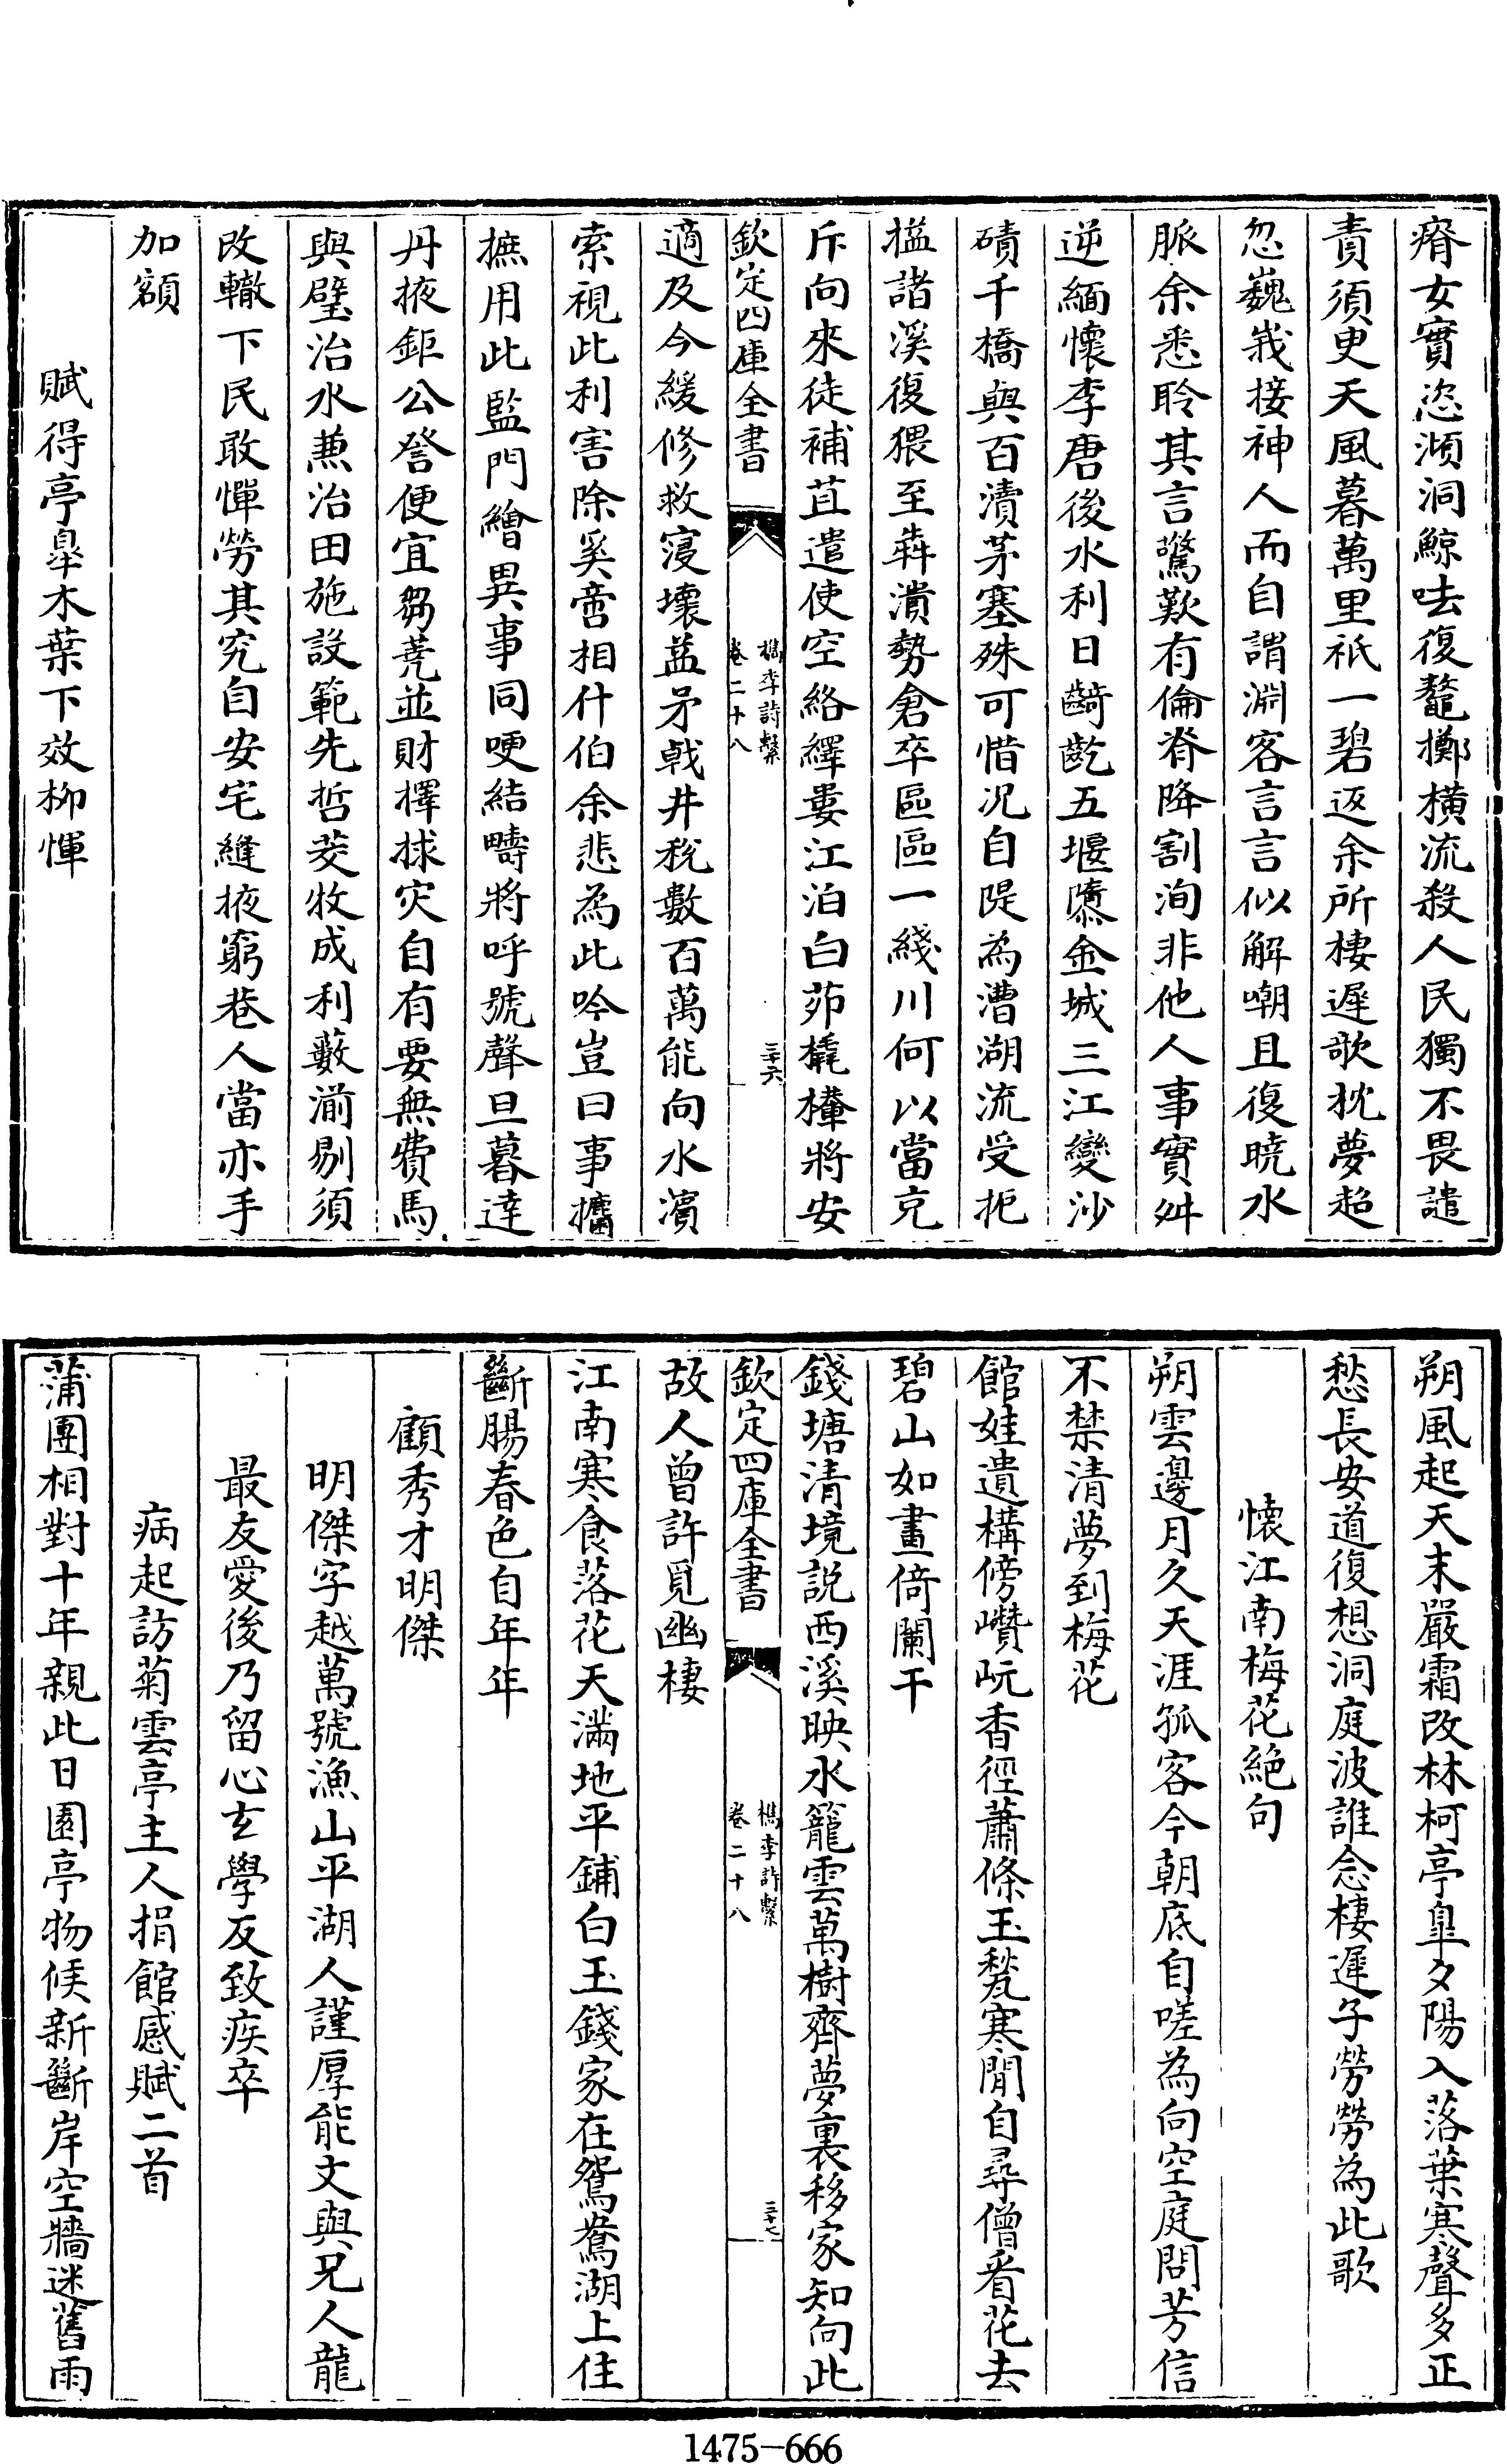 瘠女實恣澒洞鯨呿復鼇擲橫流殺人民獨不畏譴
責須臾天風暮萬里祇一碧返余所棲遲歌枕夢超
忽巍峩接神人而自謂淵客言言似解嘲且復曉水
脈余悉聆其言驚歎有倫脊降割洵非他人事實舛
逆緬懷李唐後水利日齮齕五堰隳金城三江變沙
磧千橋與百瀆茅塞殊可惜况自隄為漕湖流受扼
搤諸溪復猥至犇潰勢倉卒區區一綫川何以當克
斥向來徒補苴遣使空絡繹婁江泊白茆橇樺將安
欽定四庫全書
檇李詩繫
卷二十八
三十六
適及今緩修救寖壞益矛戟井税數百萬能向水濱
索視此利害除奚啻相什伯余悲為此吟豈曰事攟
摭用此監門繪異事同哽結疇將呼號聲旦暮達
丹掖鉅公發便宜芻蕘並財擇捄灾自有要無費馬
與璧治水兼治田施設範先哲茭牧成利藪湔剔須
改轍下民敢憚勞其究自安宅縫掖窮巷人當亦手
加額
賦得亭皐木葉下效柳惲
朔風起天末嚴霜改林柯亭皐夕陽入落葉寒聲多正
愁長安道復想洞庭波誰念棲遲子勞勞為此歌
懐江南梅花絶句
朔雲邊月久天涯孤客今朝底自嗟為向空庭問芳信
不禁清夢到梅花
館娃遺構傍巑岏香徑蕭條玉甃寒閒自尋僧看花去
碧山如畫倚闌干
錢塘清境説西溪映水籠雲萬樹齊夢裏移家知向此
欽定四庫全書
檇李詩繫
卷二十八
三十七
故人曾許覓幽棲
江南寒食落花天滿地平鋪白玉錢家在鴛鴦湖上住
斷腸春色自年年
顧秀才明傑
明傑字越萬號漁山平湖人謹厚能文與兄人龍
最友愛後乃留心玄學反致疾卒
病起訪菊雲亭主人捐館感賦二首
蒲團相對十年親此日園亭物候新斷岸空牆迷舊雨
1475-666